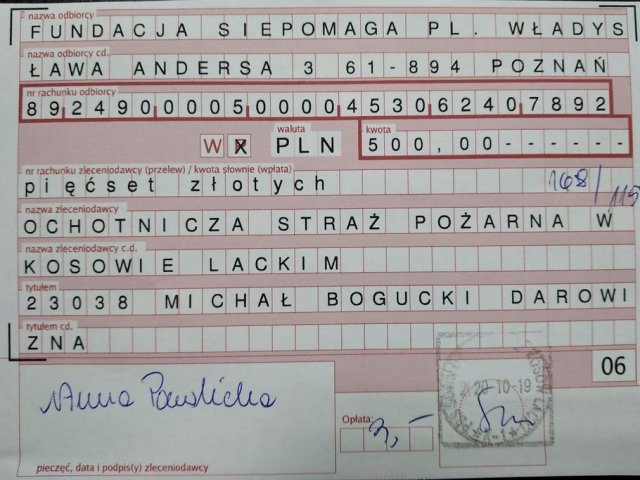 nazwa odbiorcy
FUNDACJA SIEPOMAGA PL. WŁADYS
nazwa odbiorcy cd.
ŁAWA ANDERSA 3 61-894 POZNAŃ
nr rachunku odbiorcy
89249000050000453062407892
W X waluta PLN kwota 500,00------
nr rachunku zleceniodawcy (przelew) / kwota słownie (wpłata)
pięćset złotych 168/115
nazwa zleceniodawcy
OCHOTNICZA STRAŻ POŻARNA W
nazwa zleceniodawcy c.d.
KOSOWIE LACKIM
tytułem
23038 MICHAŁ BOGUCKI DAROWI
tytułem cd.
ZNA
06
20-10-19
Anna Pawlicka
Opłata:
3,-
pieczęć, data i podpis(y) zleceniodawcy